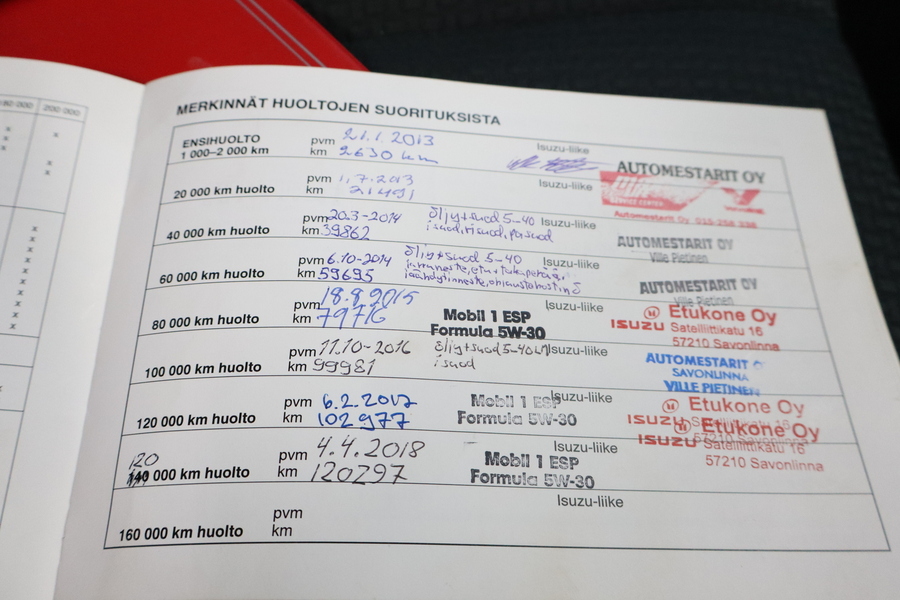 200 000
MERKINNÄT HUOLTOJEN SUORITUKSISTA
ENSIHUOLTO
1 000–2 000 km
pvm 21.1.2013
km 2630 km
Isuzu-liike
AUTOMESTARIT OY
20 000 km huolto
pvm 1.7.2013
km 21491
Isuzu-liike
SERVICE CENTER
Automestarit Oy
40 000 km huolto
pvm 20.3-2014
km 39862
öljyt+suod 5-40
Isuzu-liike
AUTOMESTARIT OY
Ville Pietinen
60 000 km huolto
pvm 6.10-2014
km 59695
öljyt+suod 5-40
Isuzu-liike
AUTOMESTARIT OY
Ville Pietinen
80 000 km huolto
pvm 18.8.2015
km 79716
Mobil 1 ESP
Formula 5W-30
Isuzu-liike
Etukone Oy
ISUZU Satelliittikatu 16
57210 Savonlinna
100 000 km huolto
pvm 11.10-2016
km 99981
öljyt+suod 5-40
isuod
Isuzu-liike
AUTOMESTARIT
SAVONLINNA
VILLE PIETINEN
120 000 km huolto
pvm 6.2.2017
km 102977
Mobil 1 ESP
Formula 5W-30
Isuzu-liike
Etukone Oy
ISUZU
120
140 000 km huolto
pvm 4.4.2018
km 120297
Mobil 1 ESP
Formula 5W-30
Isuzu-liike
Etukone Oy
ISUZU Satelliittikatu 16
57210 Savonlinna
160 000 km huolto
pvm
km
Isuzu-liike